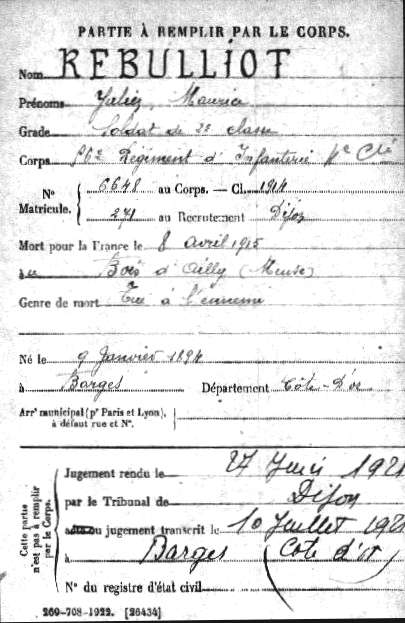 PARTIE À REMPLIR PAR LE CORPS.
Nom REBULLIOT
Prénoms Jules, Maurice
Grade Soldat de 2e classe
Corps 56e Régiment d'Infanterie
N° Matricule. { 6648 au Corps. — Cl. 1914
271 au Recrutement Dijon
Mort pour la France le 8 Avril 1915
à Bois d'Ailly (Meuse)
Genre de mort Tué à l'ennemi
Né le 9 Janvier 1894
à Barges Département Côte-D'or
Arrt municipal (pr Paris et Lyon), à défaut rue et N°.
Cette partie n'est pas à remplir par le Corps.
Jugement rendu le 27 Juin 1921
par le Tribunal de Dijon
acte ou jugement transcrit le 10 Juillet 1921
à Barges (Côte d'or)
N° du registre d'état civil
269-708-1922. [26434]